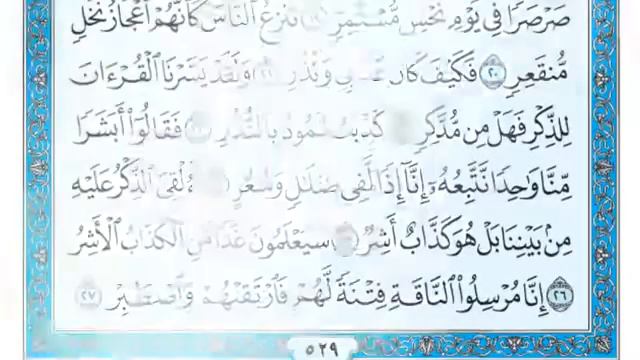 صَرْصَرًا فِي يَوْمِ نَحْسٍ مُّسْتَمِرٍّ تَنزِعُ النَّاسَ كَأَنَّهُمْ أَعْجَازُ نَخْلٍ
مُّنقَعِرٍ ٢٠ فَكَيْفَ كَانَ وَنُذُرِ ٢١ وَلَقَدْ يَسَّرْنَا الْقُرْءَانَ
لِلذِّكْرِ فَهَلْ مِن مُّدَّكِرٍ كَذَّبَتْ ثَمُودُ بِالنُّذُرِ فَقَالُوا أَبَشَرًا
مِّنَّا وَاحِدًا نَّتَّبِعُهُ إِنَّا إِذًا لَّفِي ضَلَالٍ وَسُعُرٍ أَءُلْقِيَ الذِّكْرُ عَلَيْهِ
مِنْ بَيْنِنَا بَلْ هُوَ كَذَّابٌ أَشِرٌ سَيَعْلَمُونَ غَدًا مَّنِ الْكَذَّابُ الْأَشِرُ
٢٦ إِنَّا مُرْسِلُوا النَّاقَةِ فِتْنَةً لَّهُمْ فَارْتَقِبْهُمْ وَاصْطَبِرْ ٢٧
٥٢٩